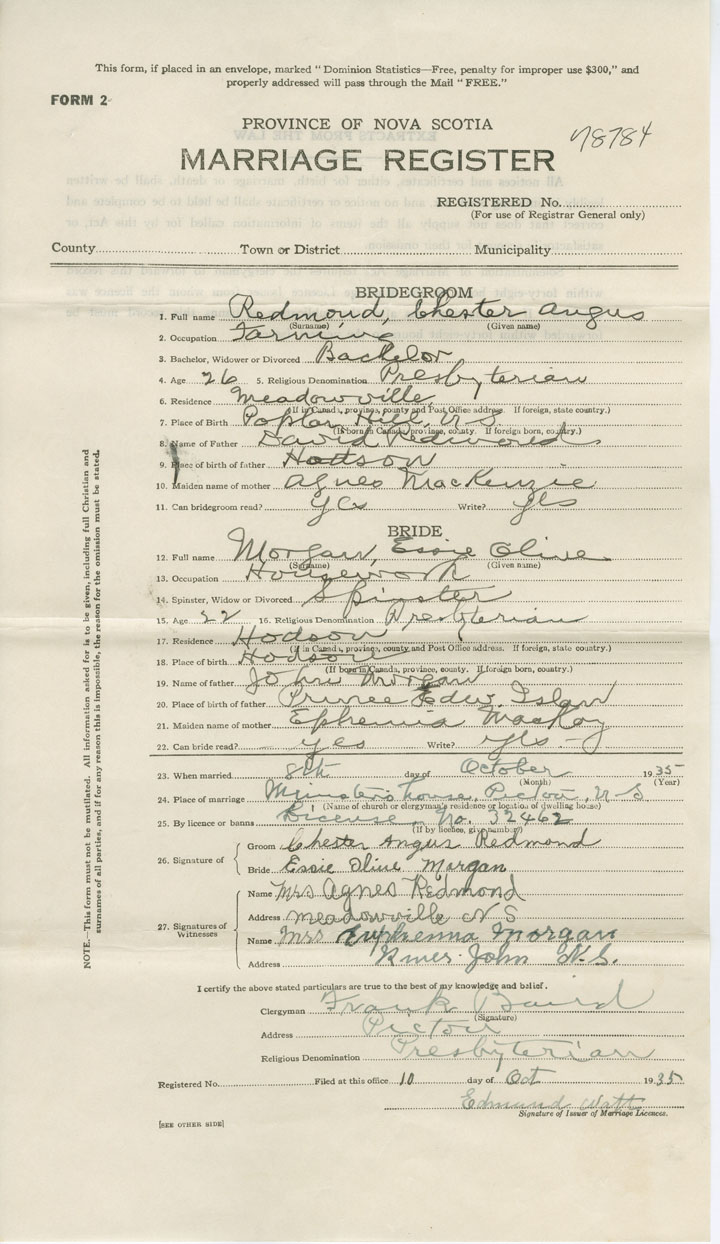 This form, if placed in an envelope, marked "Dominion Statistics—Free, penalty for improper use $300," and
properly addressed will pass through the Mail "FREE."
FORM 2
PROVINCE OF NOVA SCOTIA
78784
MARRIAGE REGISTER
REGISTERED No.
(For use of Registrar General only)
County Town or District Municipality
BRIDEGROOM
1. Full name Redmond, Chester Angus
(Surname) (Given name)
2. Occupation Farming
3. Bachelor, Widower or Divorced Bachelor
4. Age 26 5. Religious Denomination Presbyterian
6. Residence Meadowville
(If in Canada, province, county and Post Office address. If foreign, state country.)
7. Place of Birth Poplar Hill, N.S.
(If born in Canada, province, county. If foreign born, country.)
8. Name of Father David Redmond
9. Place of birth of father Hodson
10. Maiden name of mother Agnes MacKenzie
11. Can bridegroom read? Yes Write? Yes
BRIDE
12. Full name Morgan, Essie Olive
(Surname) (Given name)
13. Occupation Housework
14. Spinster, Widow or Divorced Spinster
15. Age 22 16. Religious Denomination Presbyterian
17. Residence Hodson
(If in Canada, province, county and Post Office address. If foreign, state country.)
18. Place of birth Hodson
(If born in Canada, province, county. If foreign born, country.)
19. Name of father John Morgan
20. Place of birth of father Prince Edw. Island
21. Maiden name of mother Ephemia MacKay
22. Can bride read? yes Write? yes
23. When married 8th day of October 1935
(Month) (Year)
24. Place of marriage Minister's house, Pictou, N.S
(Name of church or clergyman's residence or location of dwelling house)
25. By licence or banns License No. 32462
(If by licence, give number)
26. Signature of
Groom Chester Angus Redmond
Bride Essie Olive Morgan
27. Signatures of Witnesses
Name Mrs Agnes Redmond
Address Meadowville N S
Name Mrs Euphemia Morgan
Address River John N.S.
I certify the above stated particulars are true to the best of my knowledge and belief.
Clergyman Frank Baird
(Signature)
Address Pictou
Religious Denomination Presbyterian
Registered No. Filed at this office 10 day of Oct 1935
Edmund Watt
Signature of Issuer of Marriage Licences.
[SEE OTHER SIDE]
NOTE.—This form must not be mutilated. All information asked for is to be given, including full Christian and
surnames of all parties, and if for any reason this is impossible, the reason for the omission must be stated.